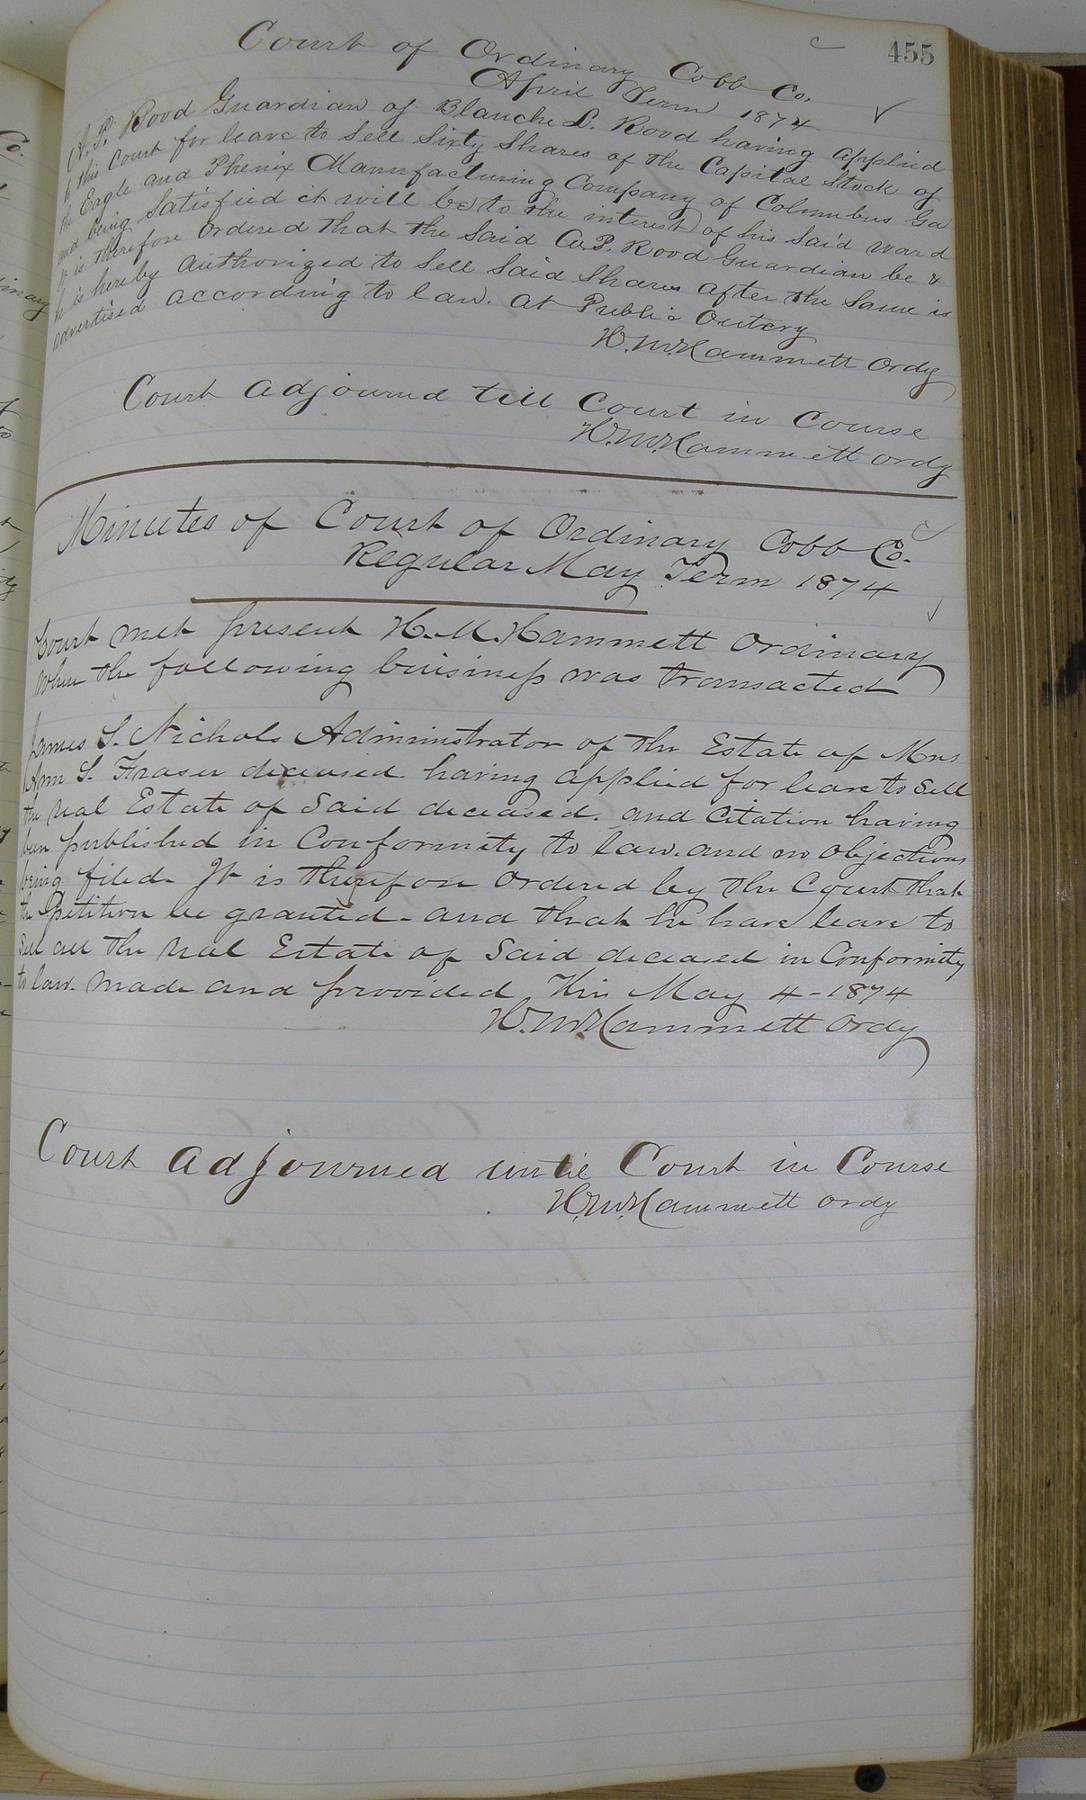 455
Court of Ordinary Cobb Co.
April Term 1874
A. P. Rood Guardian of Blanche L. Rood having applied
to this Court for leave to Sell Sixty Shares of the Capital Stock of
the Eagle and Phenix Manufacturing Company of Columbus Ga
and being Satisfied it will be to the interest of his Said ward
It is therefore Ordered that the Said A. P. Rood Guardian be &
he is hereby Authorized to Sell Said Shares after the Same is
advertised according to law. at Public Outcry
H. M. Hammett Ordy
Court adjourned till Court in Course
H. M. Hammett ordy
Minutes of Court of Ordinary Cobb Co.
Regular May Term 1874
Court met present H. M. Hammett Ordinary
When the following business was transacted
James S. Nichols Administrator of the Estate of Mrs
Ann S. Fraser deceased having applied for leave to Sell
the real Estate of Said deceased. and Citation having
been published in Conformity to law. and no Objections
being filed. It is therefore Ordered by the Court that
the Petition be granted - and that he have leave to
Sell all the real Estate of Said deceased in Conformity
to law. Made and provided This May 4 - 1874
H. M. Hammett Ordy
Court adjourned until Court in Course
H. M. Hammett ordy